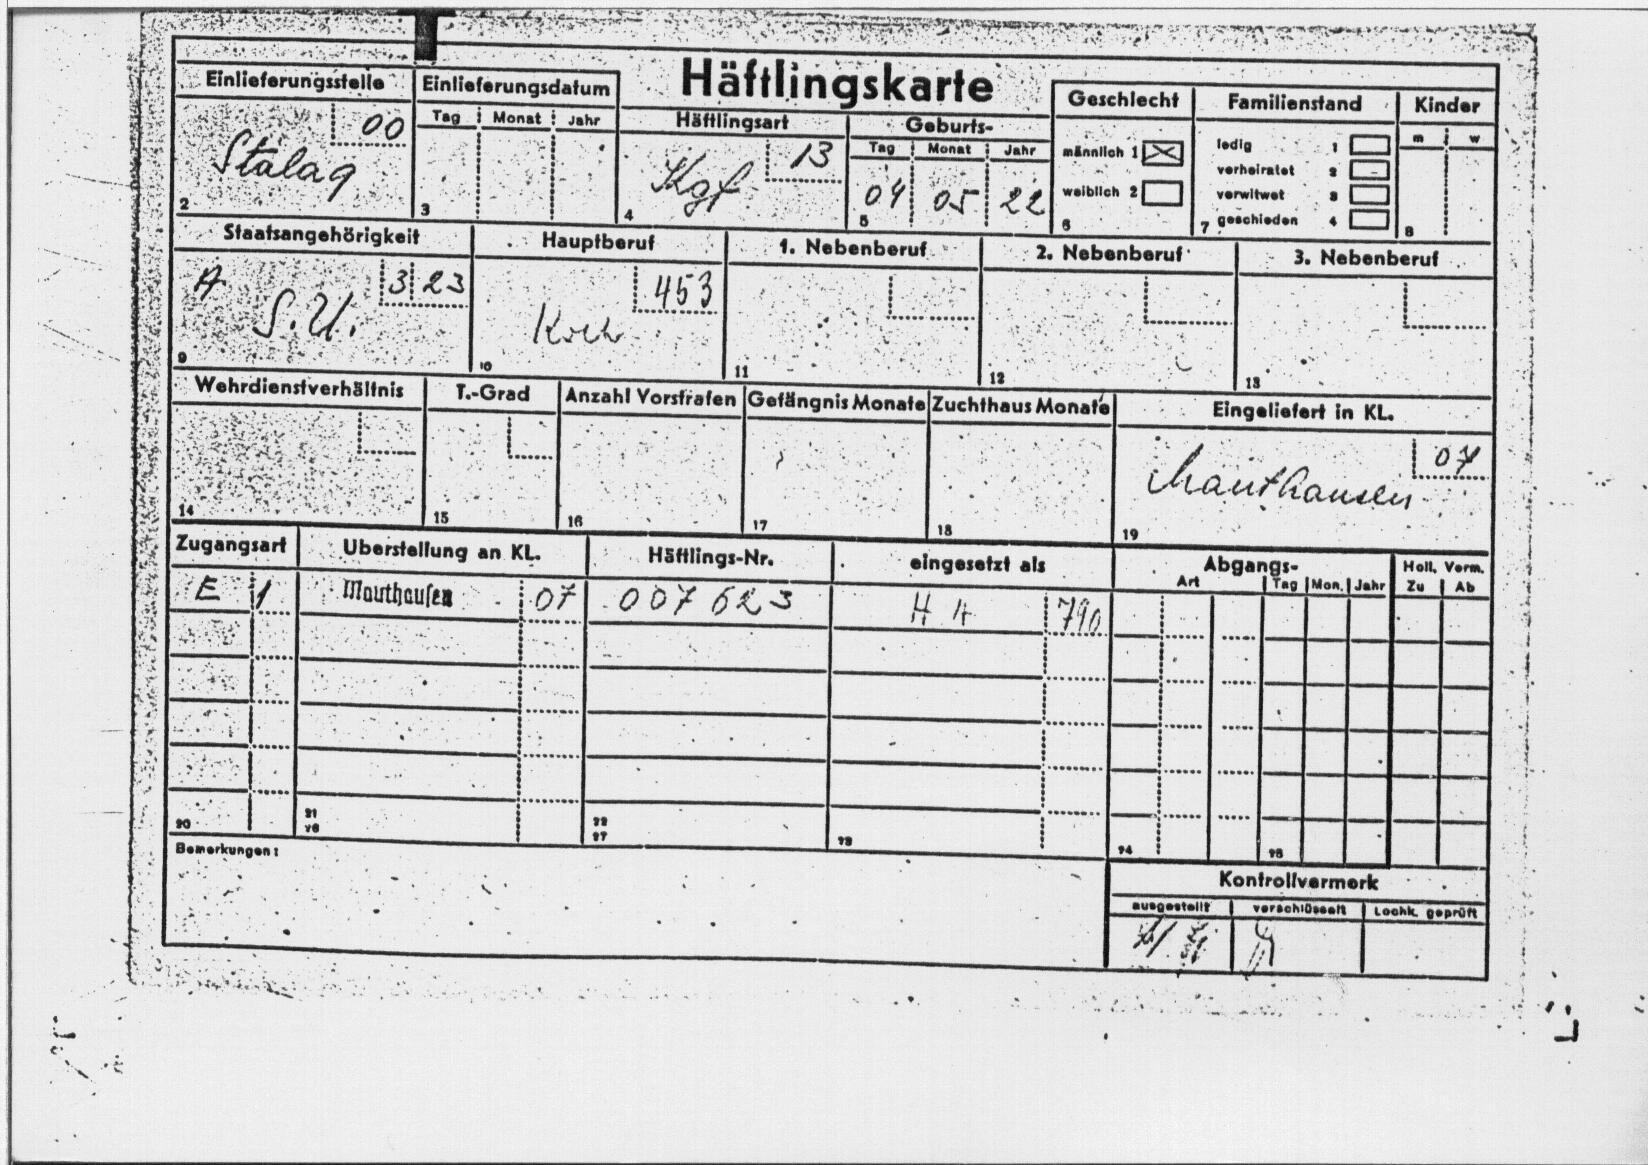 Häftlingskarte
Einlieferungsstelle
00
Stalag
2
Einlieferungsdatum
Tag Monat Jahr
3
Häftlingsart
13
Kgf
4
Geburts-
Tag Monat Jahr
04 05 22
5
Geschlecht
männlich 1
weiblich 2
6
Familienstand
ledig 1
verheiratet 2
verwitwet 3
geschieden 4
7
Kinder
m w
8
Staatsangehörigkeit
A 3 23
S.U.
9
Hauptberuf
453
Koch
10
1. Nebenberuf
11
2. Nebenberuf
12
3. Nebenberuf
13
Wehrdienstverhältnis
14
T.-Grad
15
Anzahl Vorstrafen
16
Gefängnis Monate
17
Zuchthaus Monate
18
Eingeliefert in KL.
07
Mauthausen
19
Zugangsart Überstellung an KL. Häftlings-Nr. eingesetzt als Abgangs- Holl. Verm.
Art Tag Mon. Jahr Zu Ab
E 1 Mauthausen 07 007623 H H 790
20 21 22 23 24 25
26 27
Bemerkungen:
Kontrollvermerk
ausgestellt verschlüsselt Lochk. geprüft